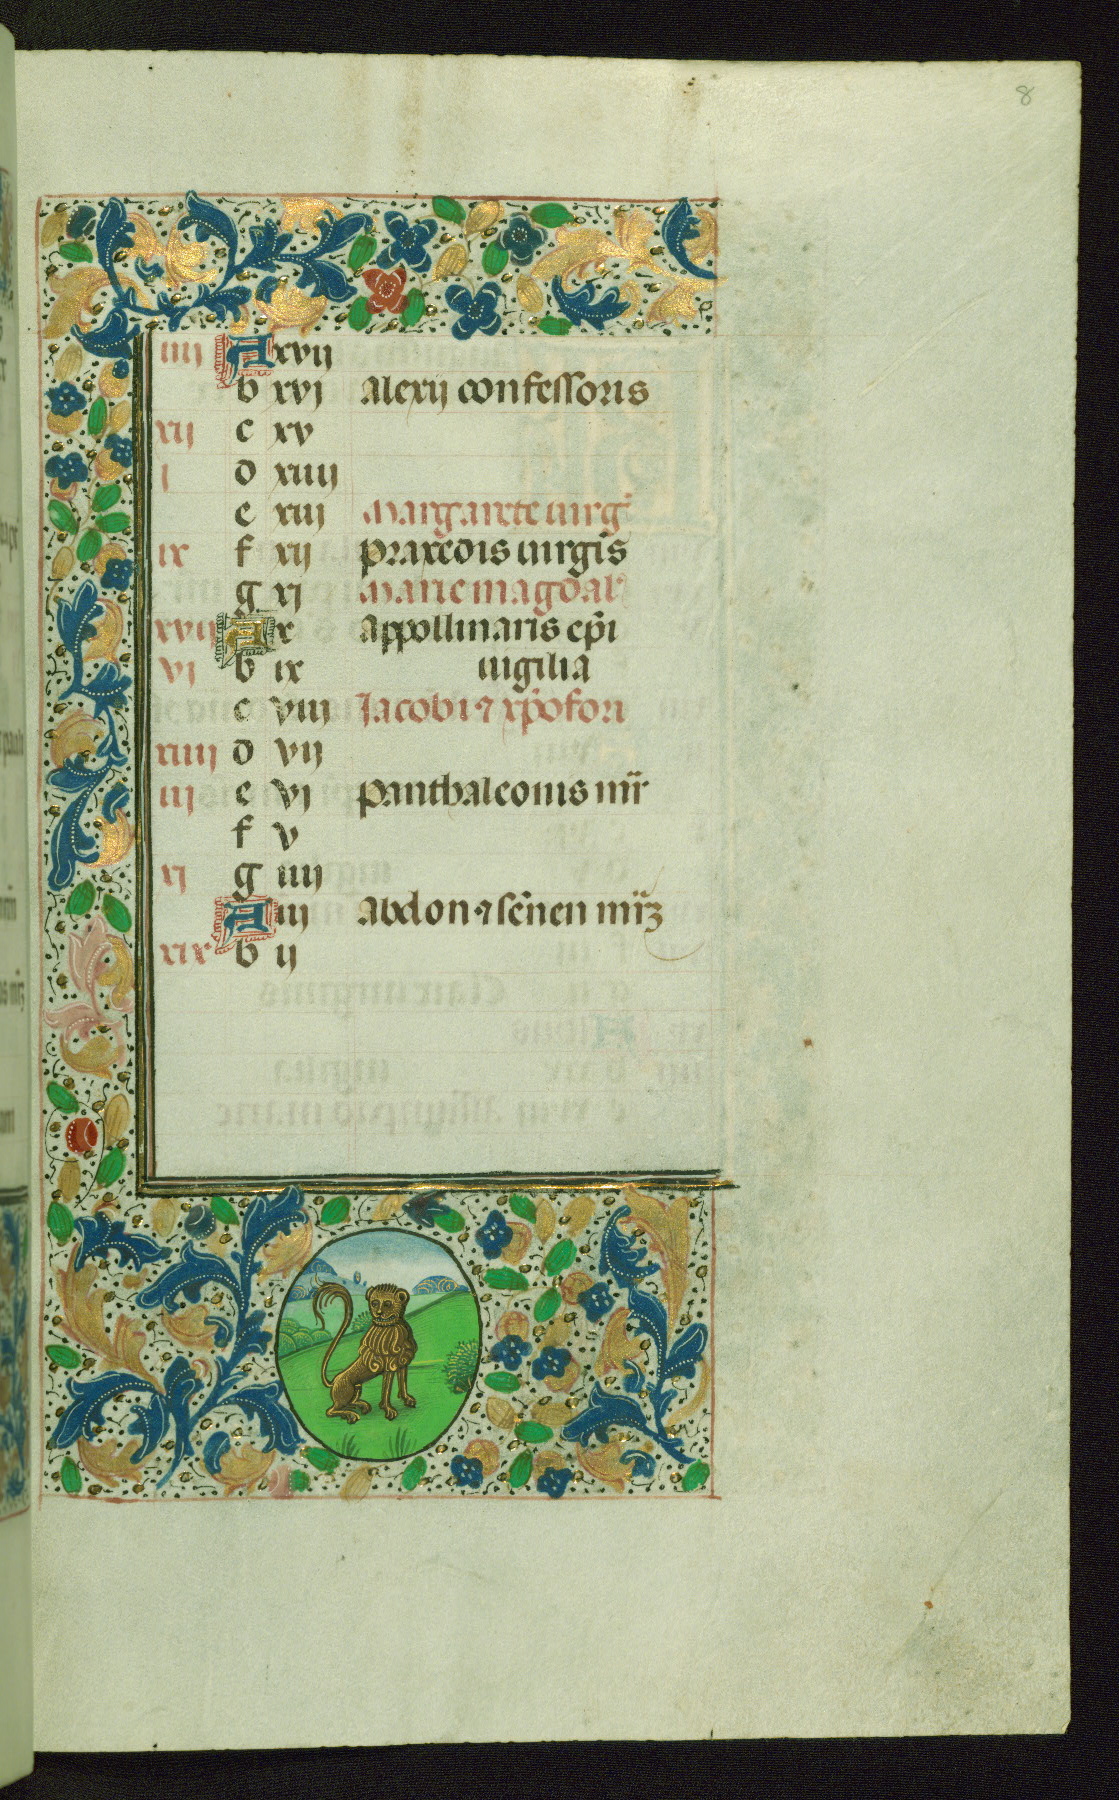 8
iiij A xvij
b xvj Alexij confessoris
xij c xv
j d xiiij
e xiij Margarete uirg̃
ix f xij praxedis uirgis̃
g xj Marie magdal'
xvij A x Appollinaris ep̃i
vj b ix uigilia
c viij Jacobi ⁊ xp̃ofori
xiiij d vij
iij e vj panthaleonis mr̃
f v
xj g iiij
A iij Abdon ⁊ sẽnen mr̃ꝫ
xix b ij